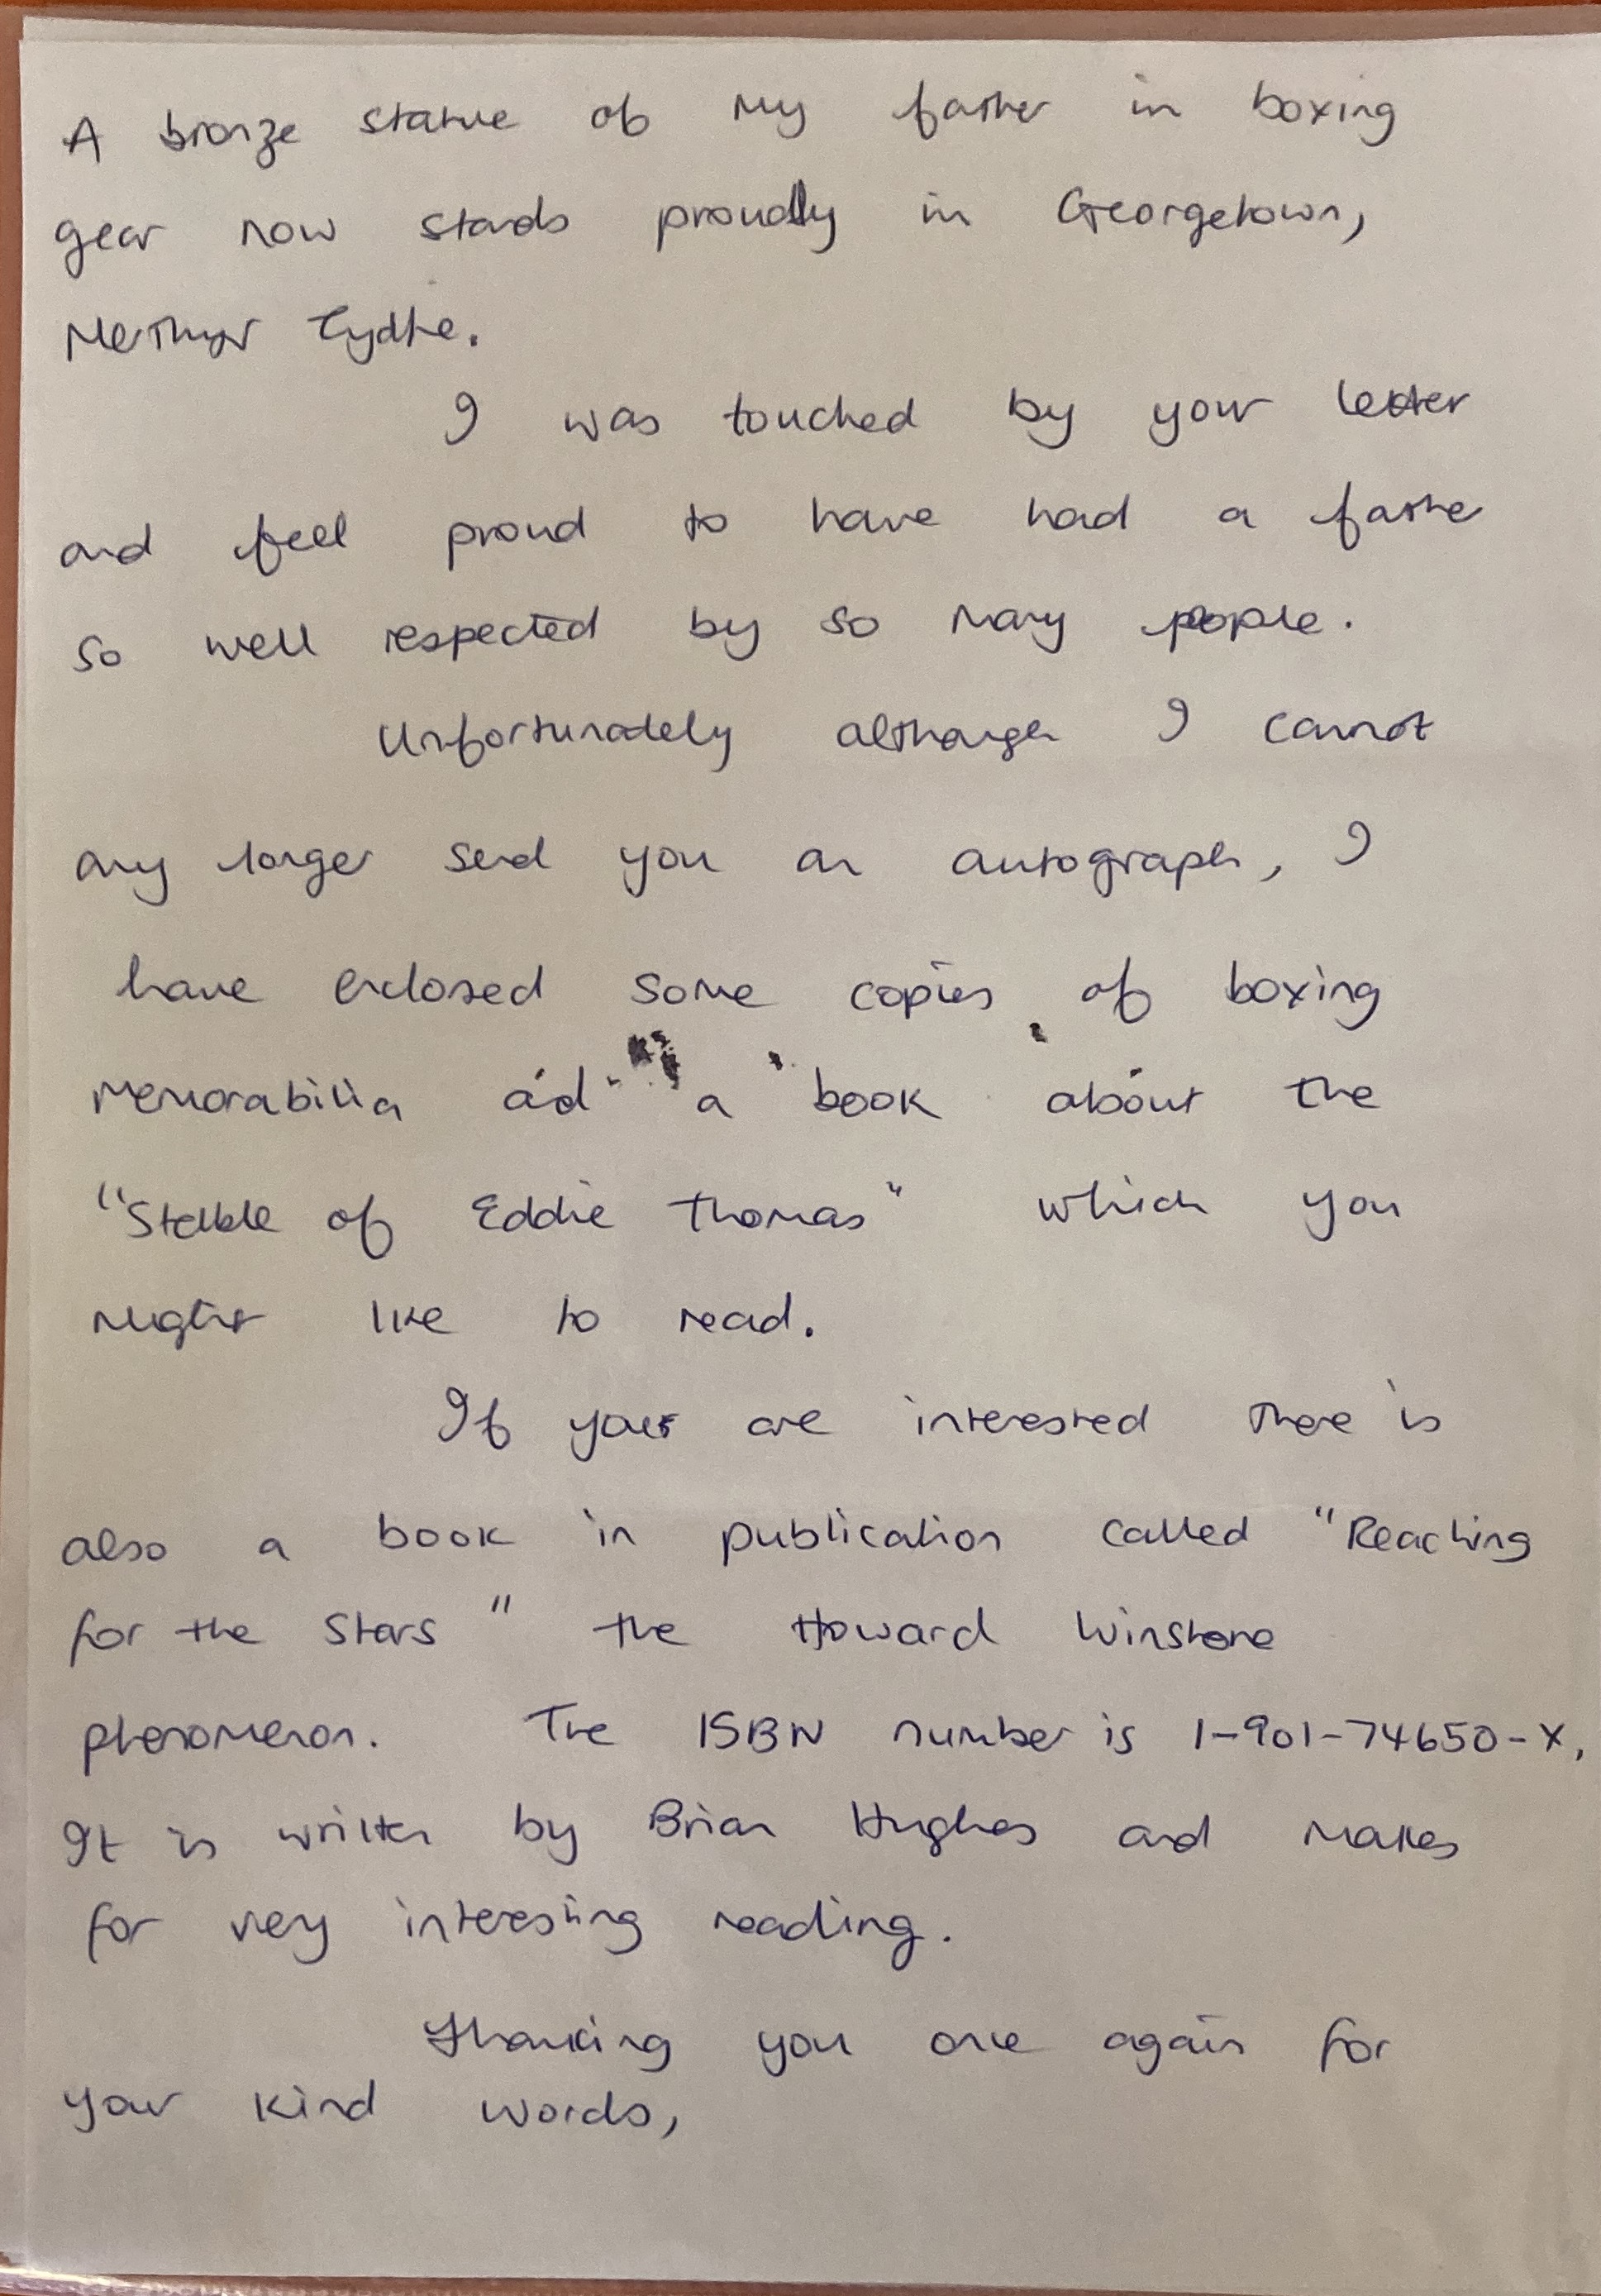 A bronze statue of my father in boxing
gear now stands proudly in Georgetown,
Merthyr Tydfie.
I was touched by your letter
and feel proud to have had a father
so well respected by so many people.
Unfortunately although I cannot
any longer send you an autograph, I
have enclosed some copies of boxing
memorabilia and a book about the
"Stable of Eddie Thomas" which you
might like to read.
If your are interested there is
also a book in publication called "Reaching
for the Stars" the Howard Winstone
phenomenon. The ISBN number is 1-901-74650-X.
It is written by Brian Hughes and makes
for very interesting reading.
Thanking you once again for
your kind words,